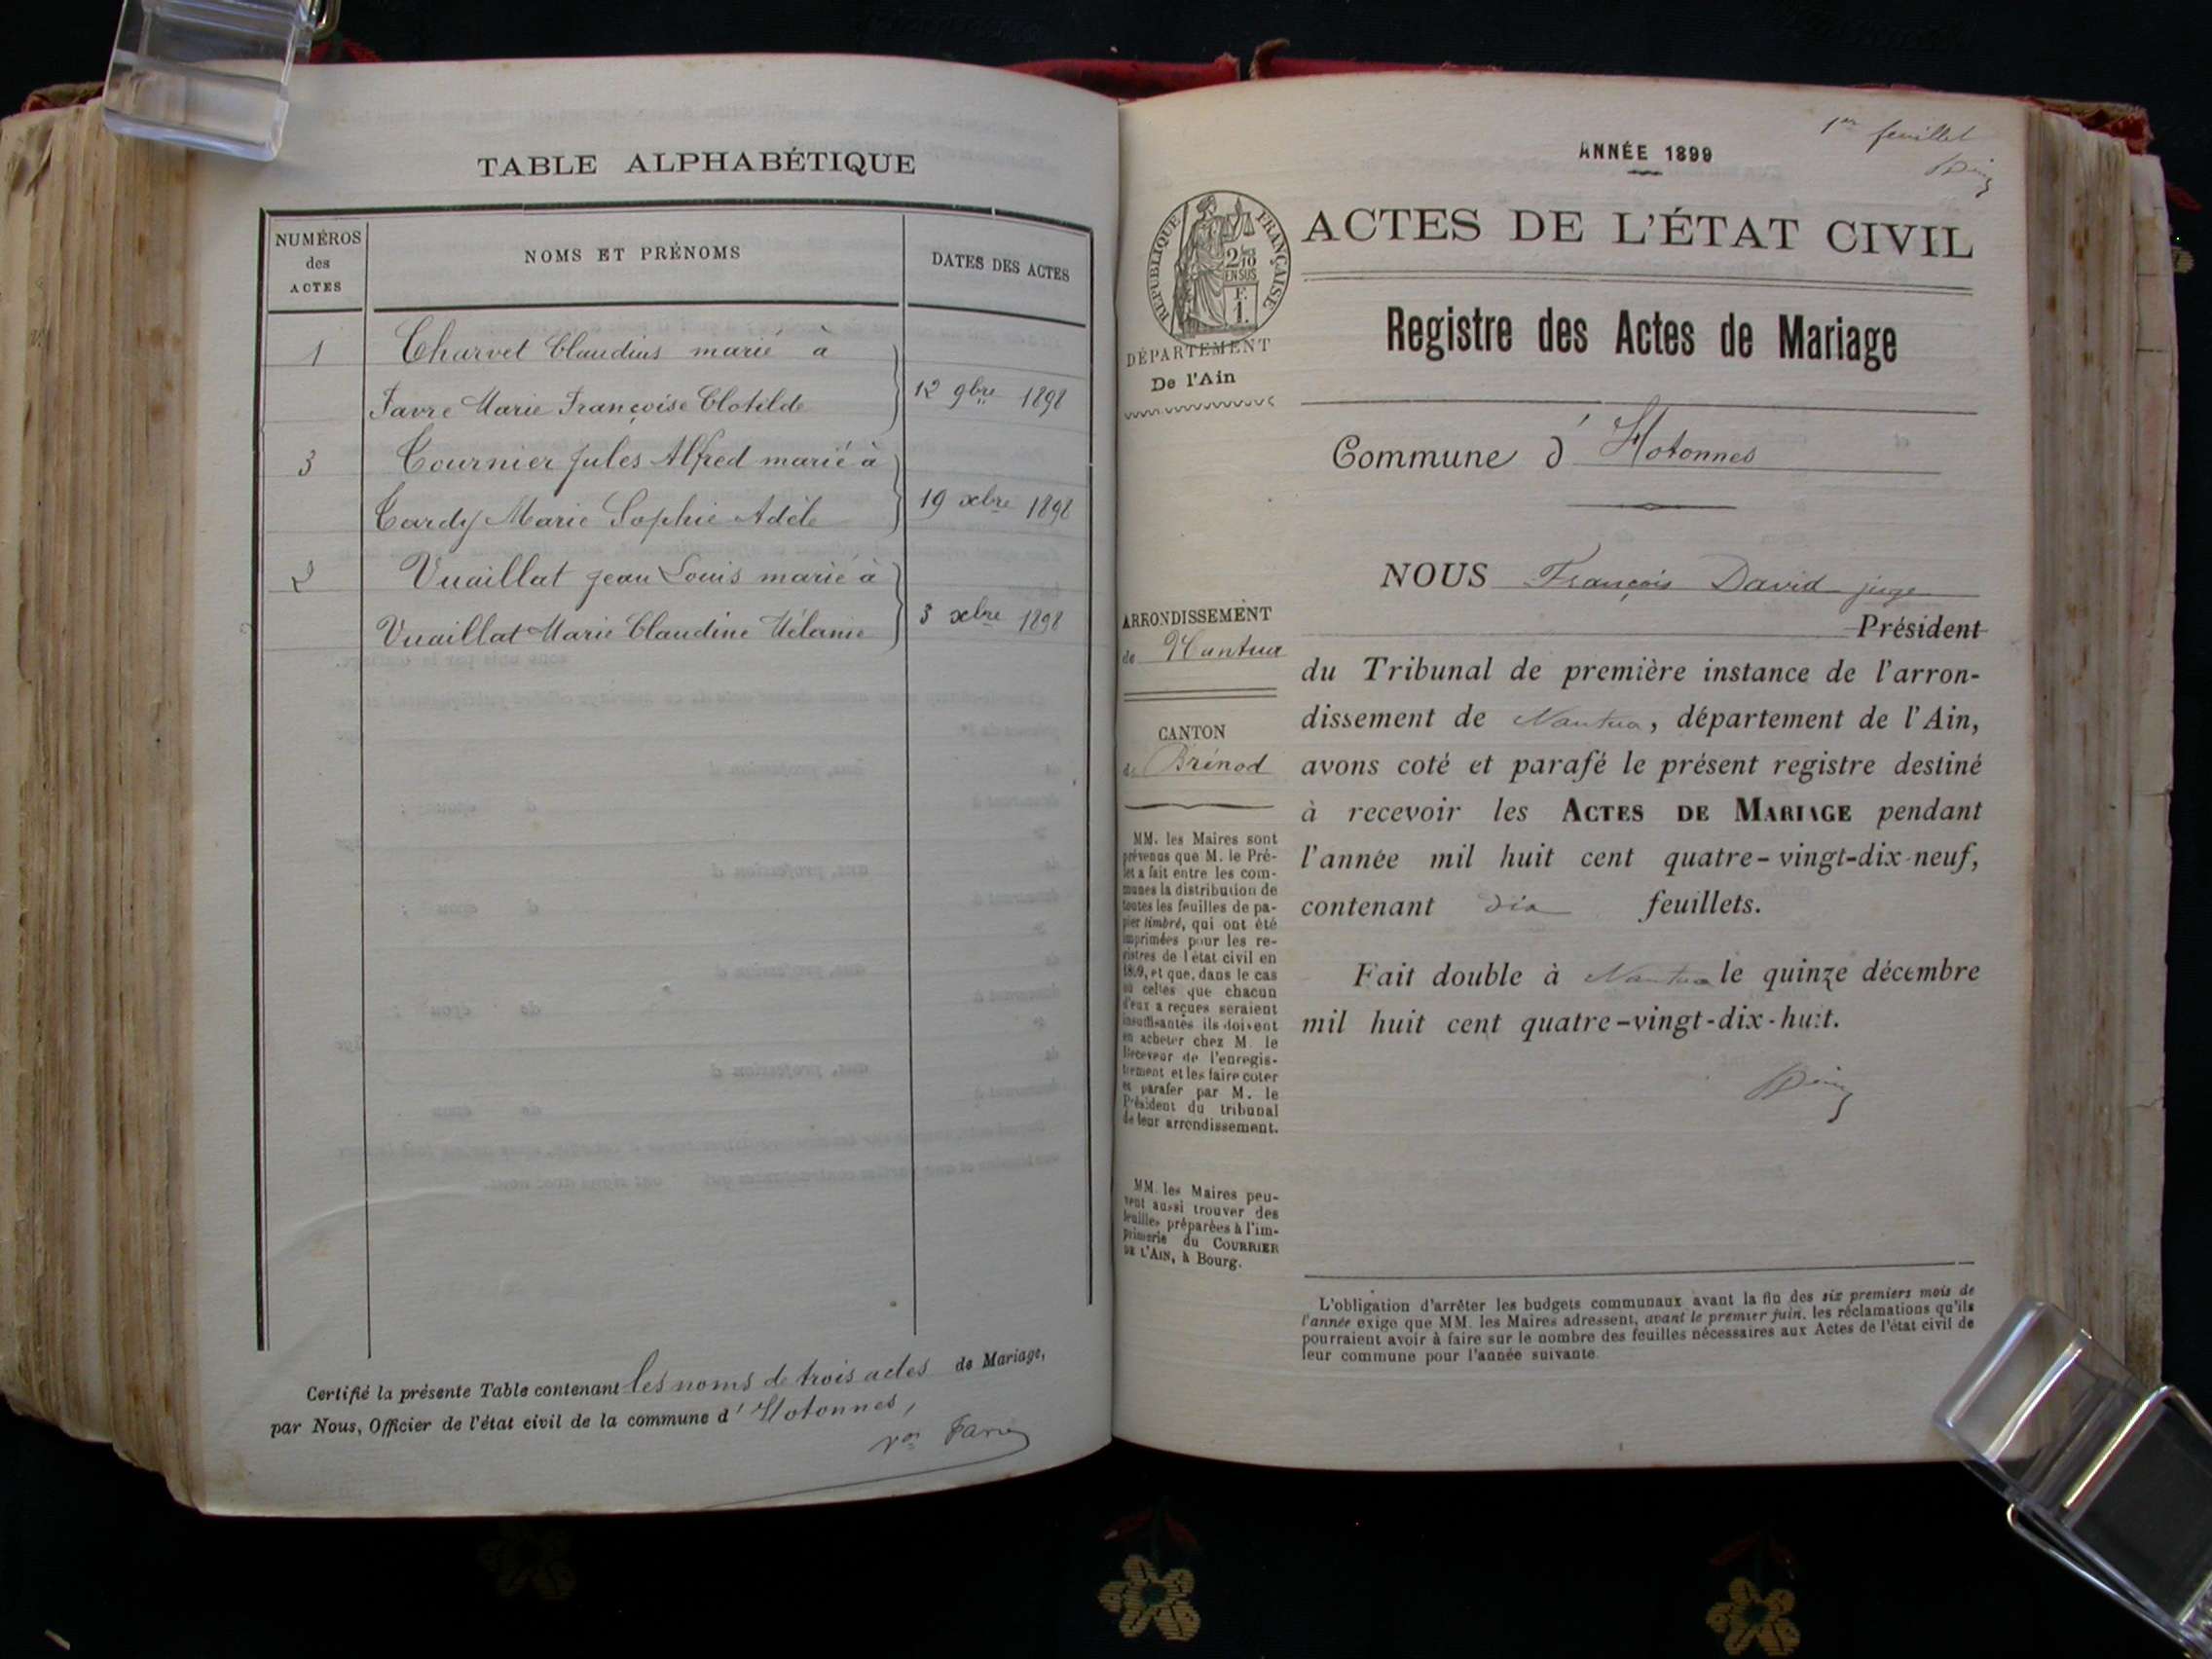 TABLE ALPHABÉTIQUE
NUMÉROS
des
ACTES
NOMS ET PRÉNOMS
DATES DES ACTES
1 Charvet Claudius marié à
Favre Marie Françoise Clotilde 12 9bre 1898
3 Cournier Jules Alfred marié à
Cardy Marie Sophie Adèle 19 xbre 1898
2 Vuaillat Jean Louis marié à
Vuaillat Marie Claudine Mélanie 3 xbre 1898
Certifié la présente Table contenant les noms de trois actes de Mariage,
par Nous, Officier de l'état civil de la commune d' Hotonnes,
1er feuillet
ANNÉE 1899
RÉPUBLIQUE FRANÇAISE
2/10
EN SUS
F.
1.
DÉPARTEMENT
De l'Ain
ACTES DE L'ÉTAT CIVIL
Registre des Actes de Mariage
Commune d' Hotonnes
ARRONDISSEMENT
de Nantua
CANTON
de Brénod
MM. les Maires sont
prévenus que M. le Pré-
fet a fait entre les com-
munes la distribution de
toutes les feuilles de pa-
pier timbré, qui ont été
imprimées pour les re-
gistres de l'état civil en
1899, et que, dans le cas
où celles que chacun
d'eux a reçues seraient
insuffisantes ils doivent
en acheter chez M. le
Receveur de l'enregis-
trement et les faire coter
et parafer par M. le
Président du tribunal
de leur arrondissement.
MM. les Maires peu-
vent aussi trouver des
feuilles préparées à l'im-
primerie du COURRIER
DE L'AIN, à Bourg.
NOUS François David juge
Président
du Tribunal de première instance de l'arron-
dissement de Nantua, département de l'Ain,
avons coté et parafé le présent registre destiné
à recevoir les ACTES DE MARIAGE pendant
l'année mil huit cent quatre-vingt-dix-neuf,
contenant dix feuillets.
Fait double à Nantua le quinze décembre
mil huit cent quatre-vingt-dix-huit.
L'obligation d'arrêter les budgets communaux avant la fin des six premiers mois de
l'année exige que MM. les Maires adressent, avant le premier juin, les réclamations qu'ils
pourraient avoir à faire sur le nombre des feuilles nécessaires aux Actes de l'état civil de
leur commune pour l'année suivante.